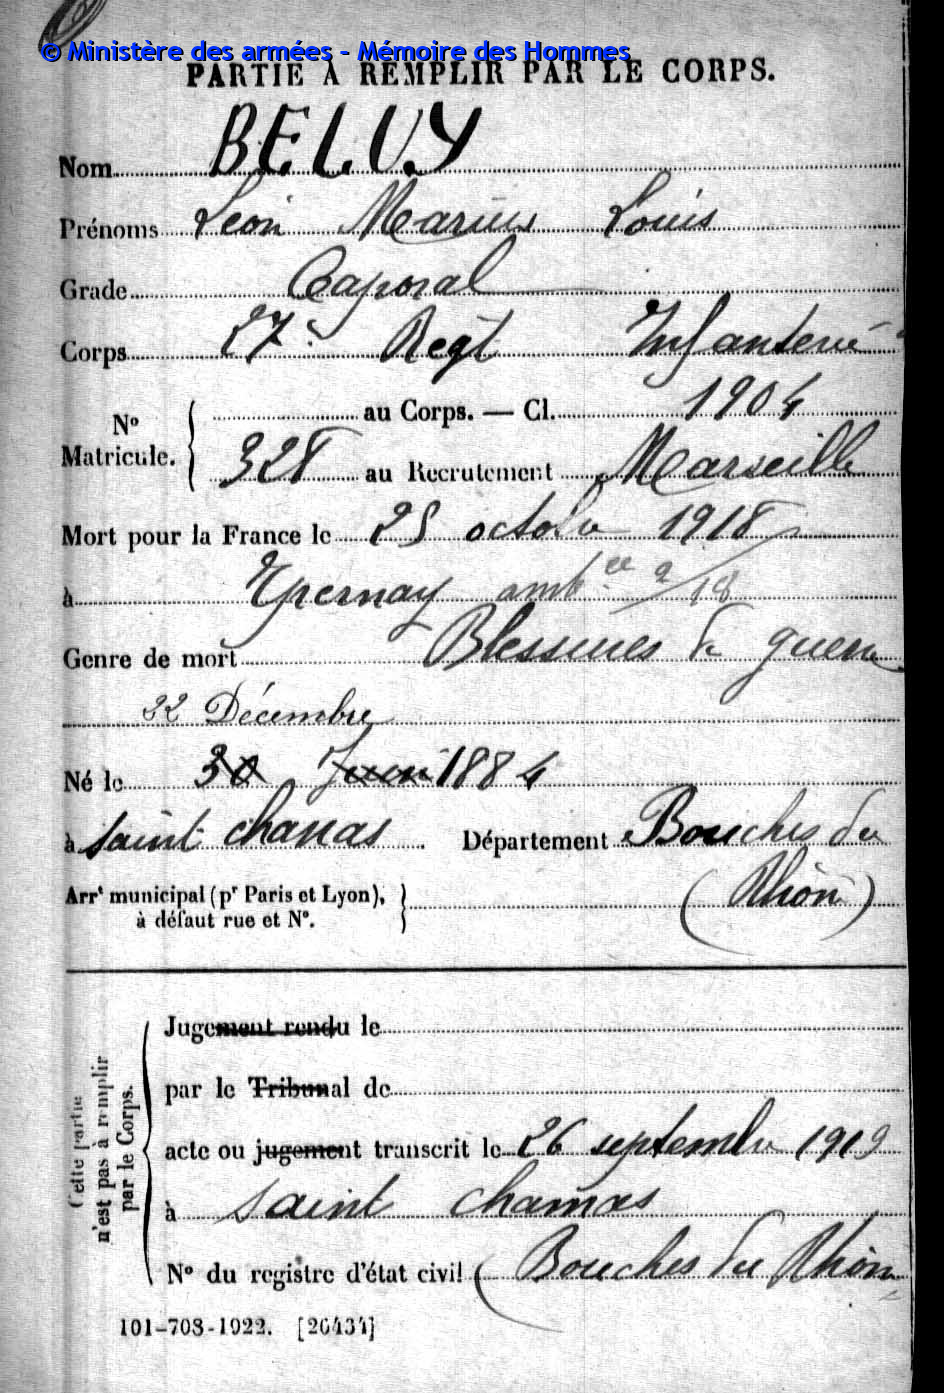 © Ministère des armées - Mémoire des Hommes
PARTIE À REMPLIR PAR LE CORPS.
Nom BELUY
Prénoms Léon Marius Louis
Grade Caporal
Corps 27e Regt Infanterie
No Matricule. { au Corps. — Cl. 1904
328 au Recrutement Marseille
Mort pour la France le 25 octobre 1918
à Epernay ambce 2/18
Genre de mort Blessures de guerre
22 Décembre
Né le 30 Juin 1884
à Saint Chamas Département Bouches du
Arrt municipal (pr Paris et Lyon), } (Rhône)
à défaut rue et No.
Cette partie n'est pas à remplir par le Corps.
Jugement rendu le
par le Tribunal de
acte ou jugement transcrit le 26 septembre 1919
à Saint Chamas
No du registre d'état civil (Bouches du Rhône
101-708-1922. [26434]